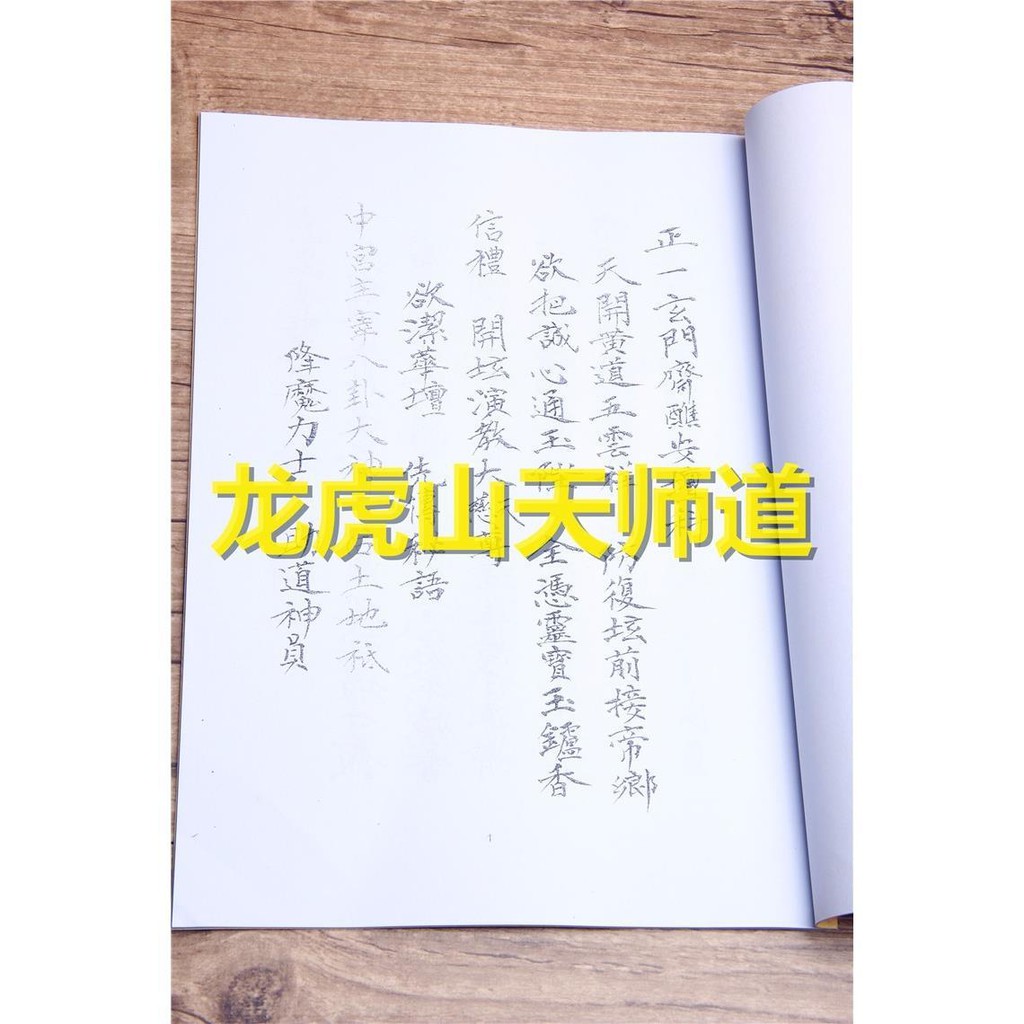 正一玄門齋醮安壇科
天開黃道五雲祥 仿復坛前接帝鄉
欲把誠心通玉 全憑靈寶玉鑪香
信禮 開坛演教大慈尊
欲潔華壇 先 秘語
中宮主宰八卦大神 土地祇
降魔力士 道神員
龙虎山天师道